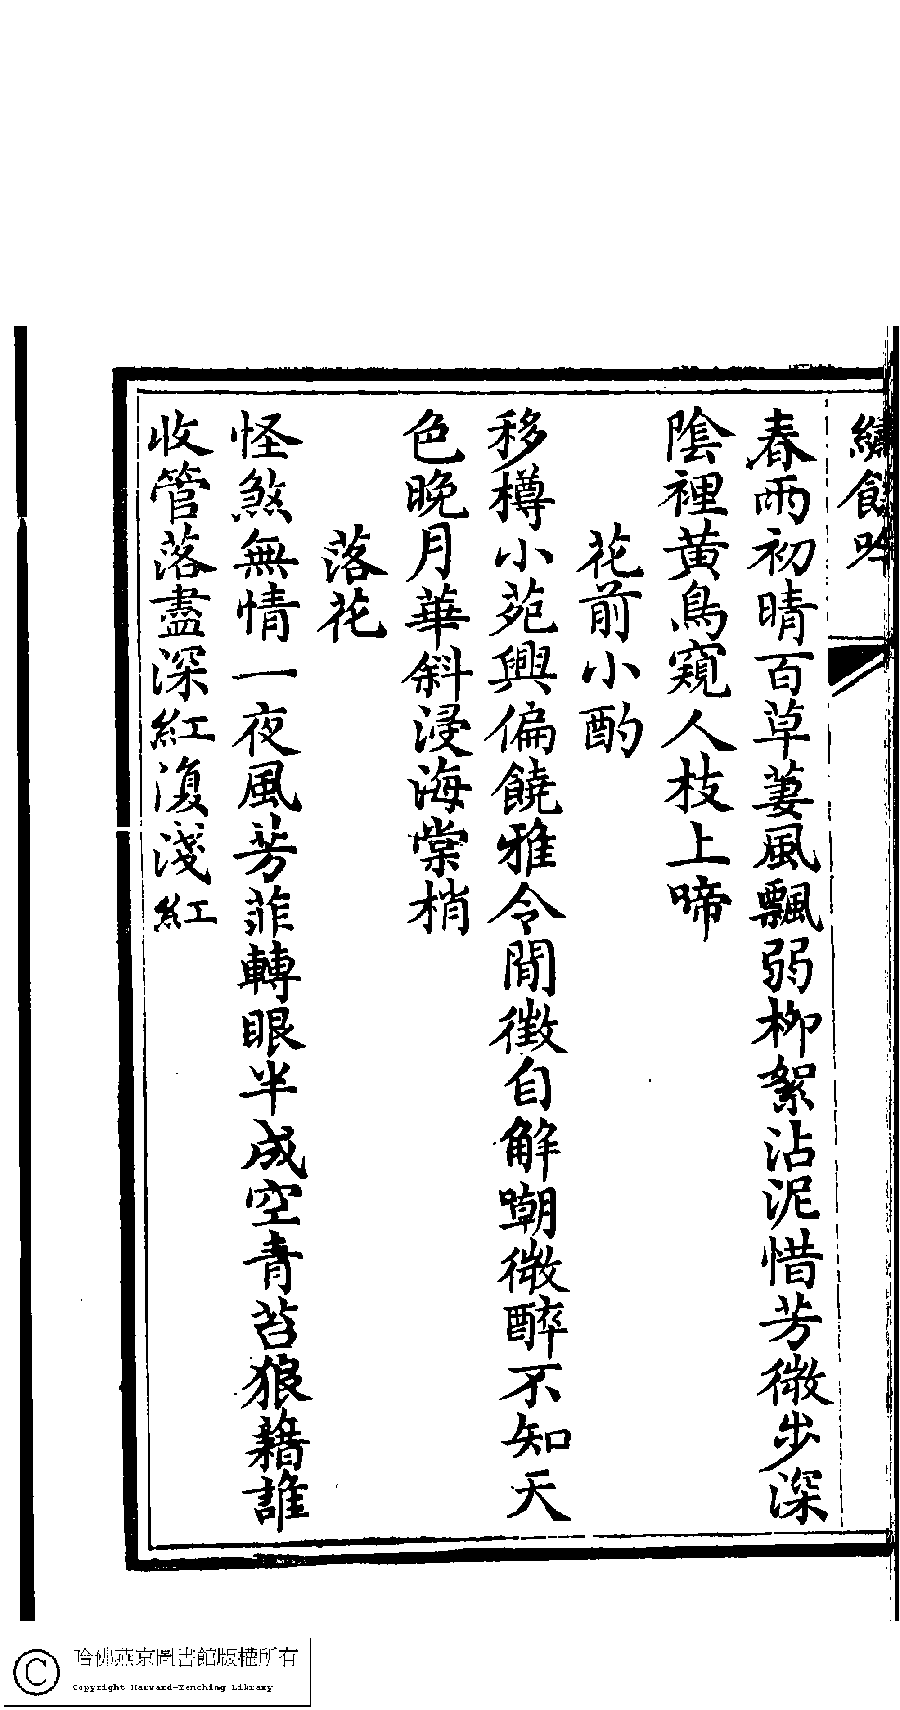 繡餘吟
春雨初晴百草萋風飄弱柳絮沾泥惜芳微步深
陰裡黃鳥窺人枝上啼
花前小酌
移樽小苑興偏饒雅令閒徵自解嘲微醉不知天
色晚月華斜浸海棠梢
落花
怪煞無情一夜風芳菲轉眼半成空青苔狼藉誰
收管落盡深紅復淺紅
哈佛燕京圖書館版權所有
Copyright Harvard-Yenching Library